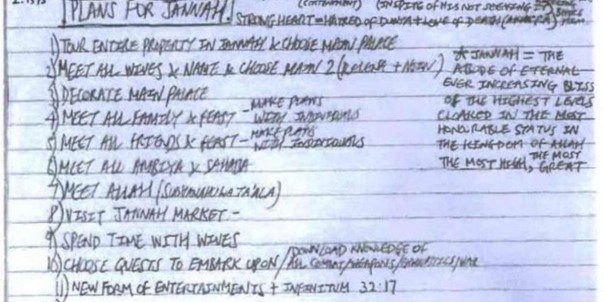 (CONTENTMENT) (INSPITE OF HIS NOT SEEKING IT)
PLANS FOR JANNAH.
STRONG HEART = HATRED OF DUNYA + LOVE OF DEATH (AKHIRA)
1) TOUR ENTIRE PROPERTY IN JANNAH & CHOOSE MAIN PALACE
2) MEET ALL WIVES & NAME & CHOOSE MAIN 2 (
3) DECORATE MAIN PALACE
4) MEET ALL FAMILY & FEAST - MAKE PLANS WITH INDIVIDUALS
5) MEET ALL FRIENDS & FEAST - MAKE PLANS WITH INDIVIDUALS
6) MEET ALL ANBIYA & SAHABA
7) MEET ALLAH (SUBHANAHU WA TA'ALA)
8) VISIT JANNAH MARKET -
9) SPEND TIME WITH WIVES
10) CHOOSE QUESTS TO EMBARK UPON / DOWNLOAD KNOWLEDGE OF ALL COMBAT/WEAPONS/ /WAR
11) NEW FORM OF ENTERTAINMENTS + INFINITUM 32:17
* JANNAH = THE
ABODE OF ETERNAL
EVER INCREASING BLISS
OF THE HIGHEST LEVELS
CLOAKED IN THE MOST
HONOURABLE STATUS IN
THE KINGDOM OF ALLAH
THE MOST HIGH, THE MOST GREAT